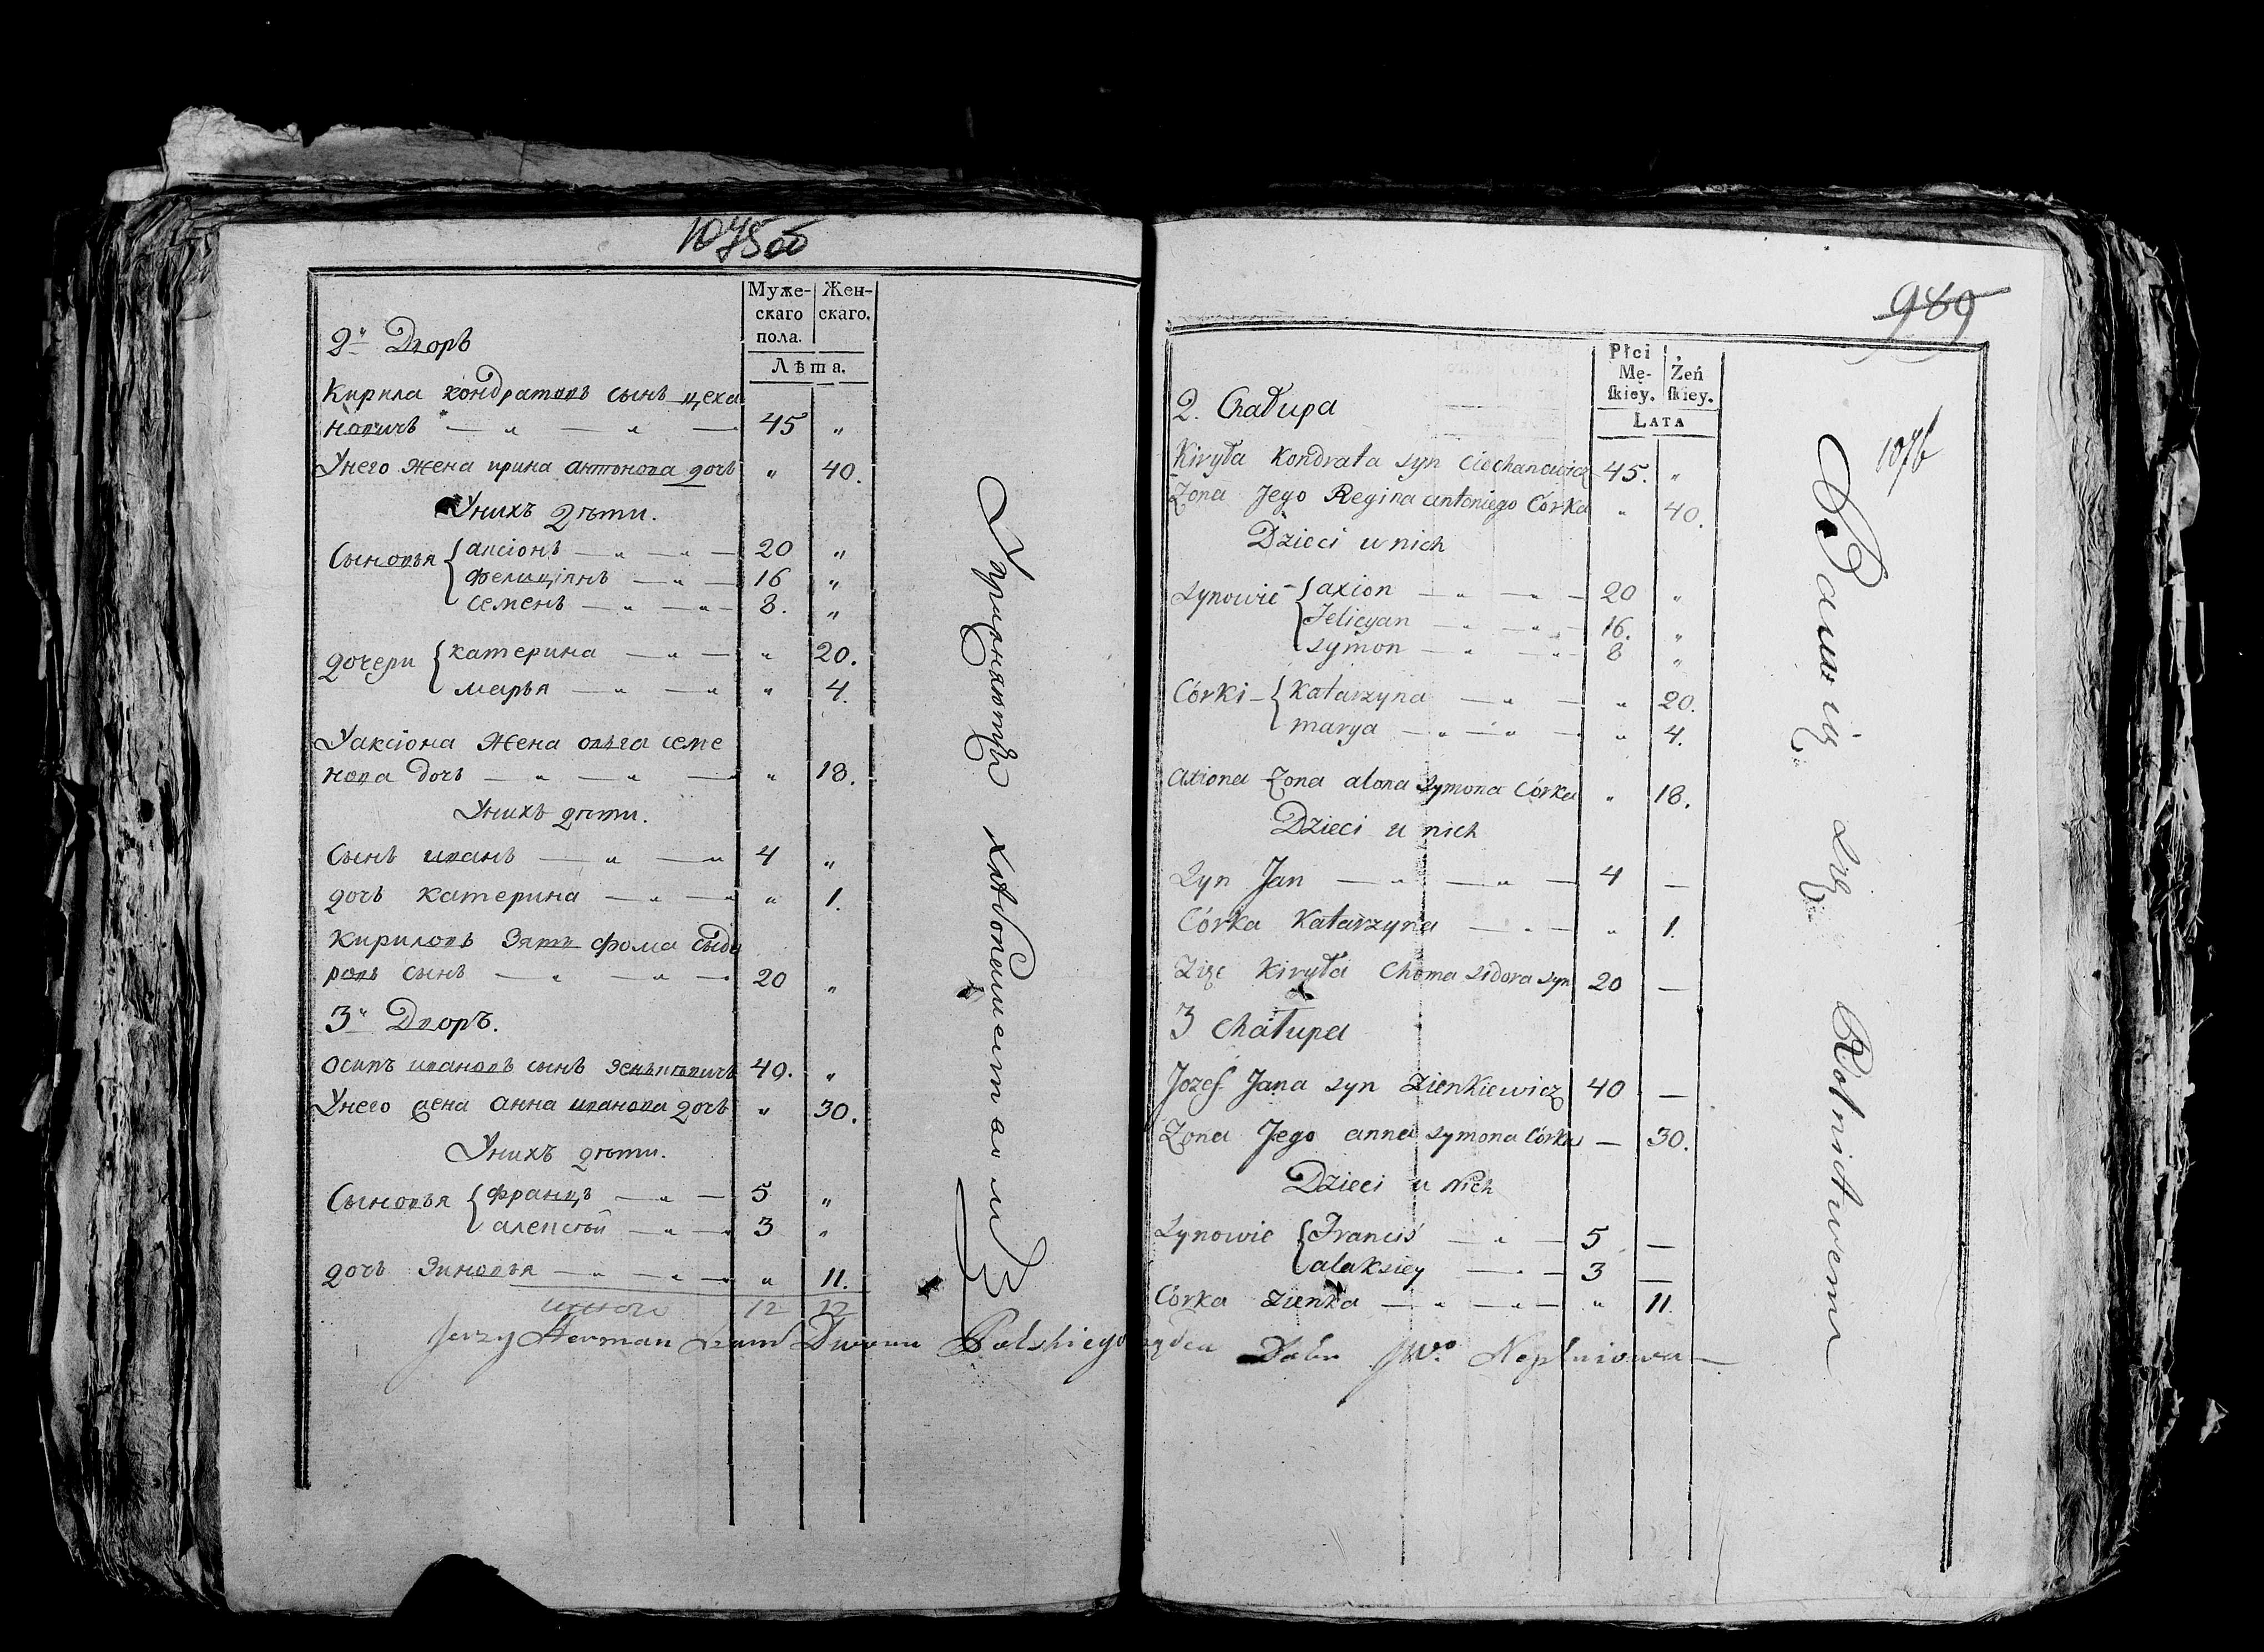 1075 об
Муже-
скаго
пола.
Жен-
скаго.
Лѣта.
2й Дворъ
Кирила кондратовъ сынъ цеха
новичъ — " — " — 45 "
Унего жена ирина антонова дочь " 40.
Унихъ дѣти.
Сыновья { аксіонъ — " — " — 20 "
фелиціянъ — " — 16 "
семенъ — " — " — 8. "
дочери { катерина — " — " 20.
марья — " — " " 4.
Уаксіона жена ольга семе
нова дочь — " — " — " 18.
Унихъ дѣти.
Сынъ иванъ — " — " 4 "
дочь катерина — " — " " 1.
Кириловъ зять фома сыдо
ровъ сынъ — " — " — 20 "
3й Дворъ.
осипъ ивановъ сынъ зенькевичъ 40. "
Унего жена анна иванова дочь " 30.
Унихъ дѣти.
Сыновья { францъ — " — 5 "
алексѣй — " — " 3 "
дочь зиновья — " — " — " " 11.
итого 12 12
Упражняются хлѣбопашествомъ
Jerzy Herman Dworu Polskiego
989
1076
Płci
Mę-
ſkiey.
Żeń
ſkiey.
LATA
2. Chałupa
Kiryła Kondrata syn Ciechanowicz 45. "
Zona Jego Regina antoniego Córka " 40.
Dzieci u nich
Synowie { axion — " — " — 20 "
Felicyan — " — " — 16. "
symon — " — " 8 "
Córki { Katarzyna — " — " 20.
marya — " — " — " 4.
Axiona Zona alona symona Córka " 18.
Dzieci u nich
Syn Jan — " — " — 4 —
Córka Katarzyna — " — " 1.
Zięc Kiryła Choma sidora syn 20 —
3 chałupa
Jozef Jana syn Zienkiewicz 40 —
Zona Jego anna symona Córka — 30.
Dzieci u Nich
Synowie { Francis — " — 5 —
alaksiey — " — 3 —
Córka Zienka — " — " — " 11.
Bawią się Rolnictwem
Dobr JWo